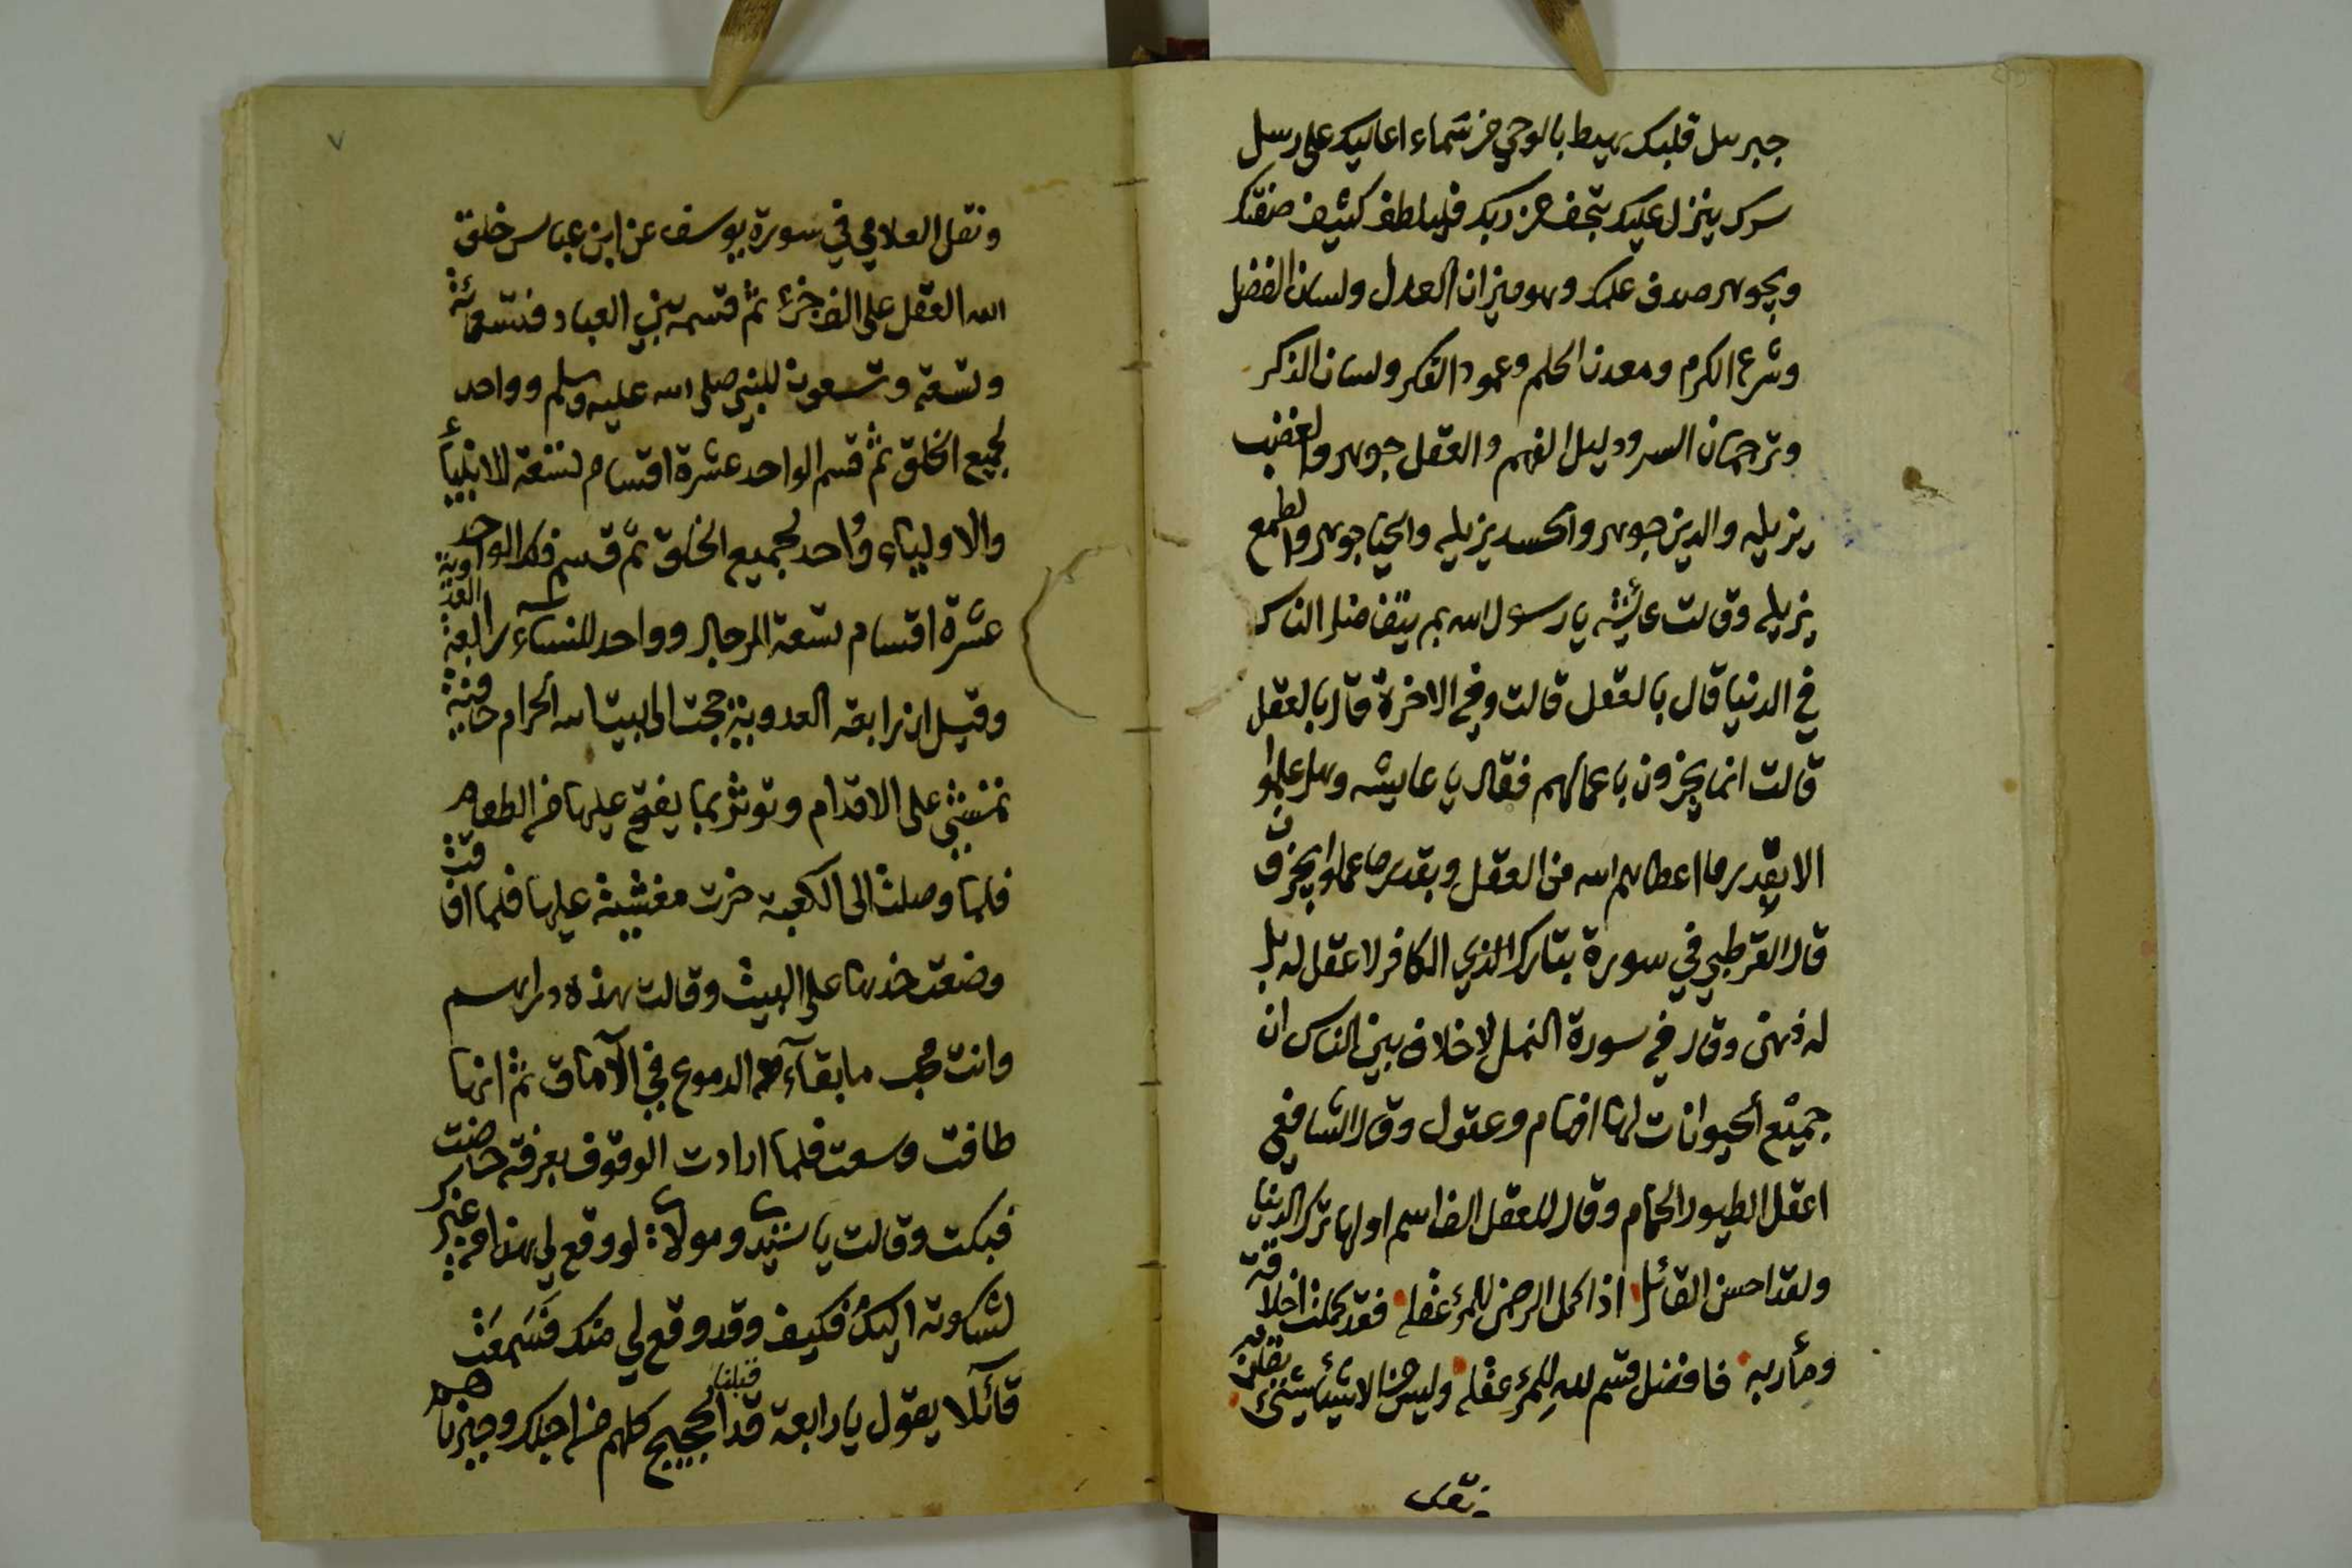 جبريل قلبك يهبط بالوحي من سماء اعاليك على رسل
سرك ينزل عليك بتحف من ربك فيلطف كثيف صفتك
وبجوهر صدف علمك وهو ميزان العدل ولسان الفضل
وشرع الكرم ومعدن الحلم وعمود الفكر ولسان الذكر
وترجمان السر ودليل الفهم والعقل جوهر والغضب
يزيله والدين جوهر والحسد يزيله والحيا جوهر والطمع
يزيله وقالت عائشة يا رسول الله بم يتفاضل الناس
في الدنيا قال بالعقل قالت وفي الاخرة قال بالعقل
قالت انما يجزون باعمالهم فقال يا عايشه وهل عملوا
الا بقدر ما اعطاهم الله من العقل وبقدر ما عملوا يجزون
قال القرطبي في سورة تبارك الذي الكافر لا عقل له بل
له ذهن وقال في سورة النمل لا خلاف بين الناس ان
جميع الحيوانات لها افهام وعقول وقال الشافعي
اعقل الطيور الحمام وقال للعقل الف اسم اولها ترك الدنيا
ولقد احسن القائل اذا اكمل الرحمن للمرء عقله فقد كملت اخلاقه
ومأربه فافضل قسم لله للمرء عقله وليس من الاشيا شيئ يقاربه
ونقل
٧
ونقل العلامي في سورة يوسف عن ابن عباس خلق
الله العقل على الف جزء ثم قسمه بين العباد فتسعمائة
وتسعة وتسعون للنبي صلى الله عليه وسلم وواحد
لجميع الخلق ثم قسم الواحد عشرة اقسام تسعة للانبياء
والاولياء وواحد لجميع الخلق ثم قسم ذلك الواحد
عشرة اقسام تسعة للرجال وواحد للنساء رابعة العدوية
وقيل ان رابعة العدوية حجت الى بيت الله الحرام حافية
تمشي على الاقدام وتوثر بما يفتح عليها من الطعام
فلما وصلت الى الكعبة خرت مغشية عليها فلما افاقت
وضعت خدها على البيت وقالت هذه دارهم
وانت محب ما بقاء الدموع في الآماق ثم انها
طافت وسعت فلما ارادت الوقوف بعرفة حاضت
فبكت وقالت يا سيدي ومولاي لو وقع لي هذا من غيرك
لشكوته اليك فكيف وقد وقع لي منك فسمعت
قائلا يقول يا رابعة قد قبلنا الحجيج كلهم من اجلك وجبرناهم